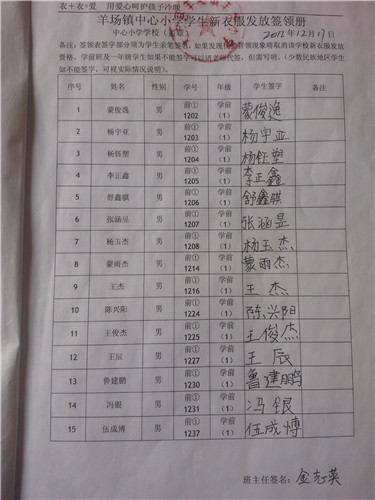 衣+衣=爱 用爱心呵护孩子冷暖
羊场镇中心小学学生新衣服发放签领册
中心小学学校（盖章） 2012年12月17日
备注：签领表签字部分须为学生亲笔签名，如果发现代签冒领现象将取消该学校新衣服发放
资格。学前班及一年级学生如果不能签字可以请老师代签，但需写明。（少数民族地区学生
如不能签字，可视实际情况说明）。
序号 姓名 性别 学号 年级 学生签字 备注
1 蒙俊逸 男 前①1202 学前（1） 蒙俊逸
2 杨宁亚 男 前①1203 学前（1） 杨宁亚
3 杨钰塑 男 前①1204 学前（1） 杨钰塑
4 李正鑫 男 前①1205 学前（1） 李正鑫
5 舒鑫骐 男 前①1206 学前（1） 舒鑫骐
6 张涵昱 男 前①1207 学前（1） 张涵昱
7 杨玉杰 男 前①1208 学前（1） 杨玉杰
8 蒙雨杰 男 前①1214 学前（1） 蒙雨杰
9 王杰 男 前①1216 学前（1） 王杰
10 陈兴阳 男 前①1224 学前（1） 陈兴阳
11 王俊杰 男 前①1225 学前（1） 王俊杰
12 王辰 男 前①1227 学前（1） 王辰
13 鲁建鹏 男 前①1230 学前（1） 鲁建鹏
14 冯银 男 前①1231 学前（1） 冯银
15 伍成博 男 前①1237 学前（1） 伍成博
班主任签名：金志英